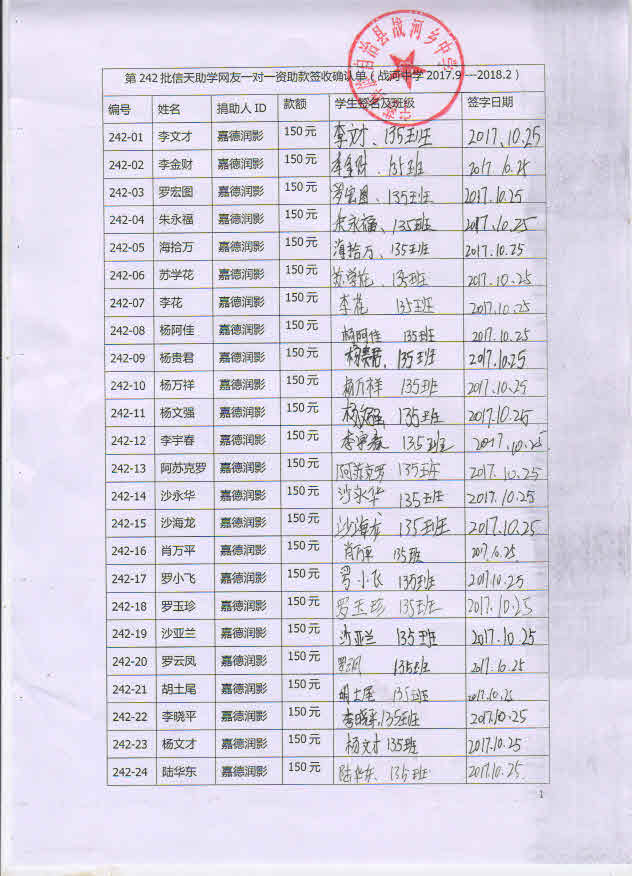 自治县战河乡中学
第 242 批信天助学网友一对一资助款签收确认单（战河中学 2017.9---2018.2）
编号 姓名 捐助人 ID 款额 学生签名及班级 签字日期
242-01 李文才 嘉德润影 150 元 李文才、135班 2017.10.25
242-02 李金财 嘉德润影 150 元 李金财、135班 2017.10.25
242-03 罗宏图 嘉德润影 150 元 罗宏图、135班 2017.10.25
242-04 朱永福 嘉德润影 150 元 朱永福、135班 2017.10.25
242-05 海拾万 嘉德润影 150 元 海拾万、135班 2017.10.25
242-06 苏学花 嘉德润影 150 元 苏学花、135班 2017.10.25
242-07 李花 嘉德润影 150 元 李花 135班 2017.10.25
242-08 杨阿佳 嘉德润影 150 元 杨阿佳 135班 2017.10.25
242-09 杨贵君 嘉德润影 150 元 杨贵君、135班 2017.10.25
242-10 杨万祥 嘉德润影 150 元 杨万祥 135班 2017.10.25
242-11 杨文强 嘉德润影 150 元 杨文强 135班 2017.10.25
242-12 李宇春 嘉德润影 150 元 李宇春、135班 2017.10.25
242-13 阿苏克罗 嘉德润影 150 元 阿苏克罗 135班 2017.10.25
242-14 沙永华 嘉德润影 150 元 沙永华 135班 2017.10.25
242-15 沙海龙 嘉德润影 150 元 沙海龙 135班 2017.10.25
242-16 肖万平 嘉德润影 150 元 肖万平 135班 2017.10.25
242-17 罗小飞 嘉德润影 150 元 罗小飞 135班 2017.10.25
242-18 罗玉珍 嘉德润影 150 元 罗玉珍 135班 2017.10.25
242-19 沙亚兰 嘉德润影 150 元 沙亚兰 135班 2017.10.25
242-20 罗云凤 嘉德润影 150 元 罗云凤 135班 2017.10.25
242-21 胡土尾 嘉德润影 150 元 胡土尾 135班 2017.10.25
242-22 李晓平 嘉德润影 150 元 李晓平、135班 2017.10.25
242-23 杨文才 嘉德润影 150 元 杨文才 135班 2017.10.25
242-24 陆华东 嘉德润影 150 元 陆华东、135班 2017.10.25
1